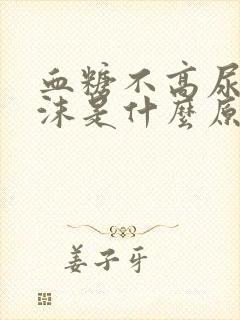 血糖不高尿
沫是什麼原
姜子牙